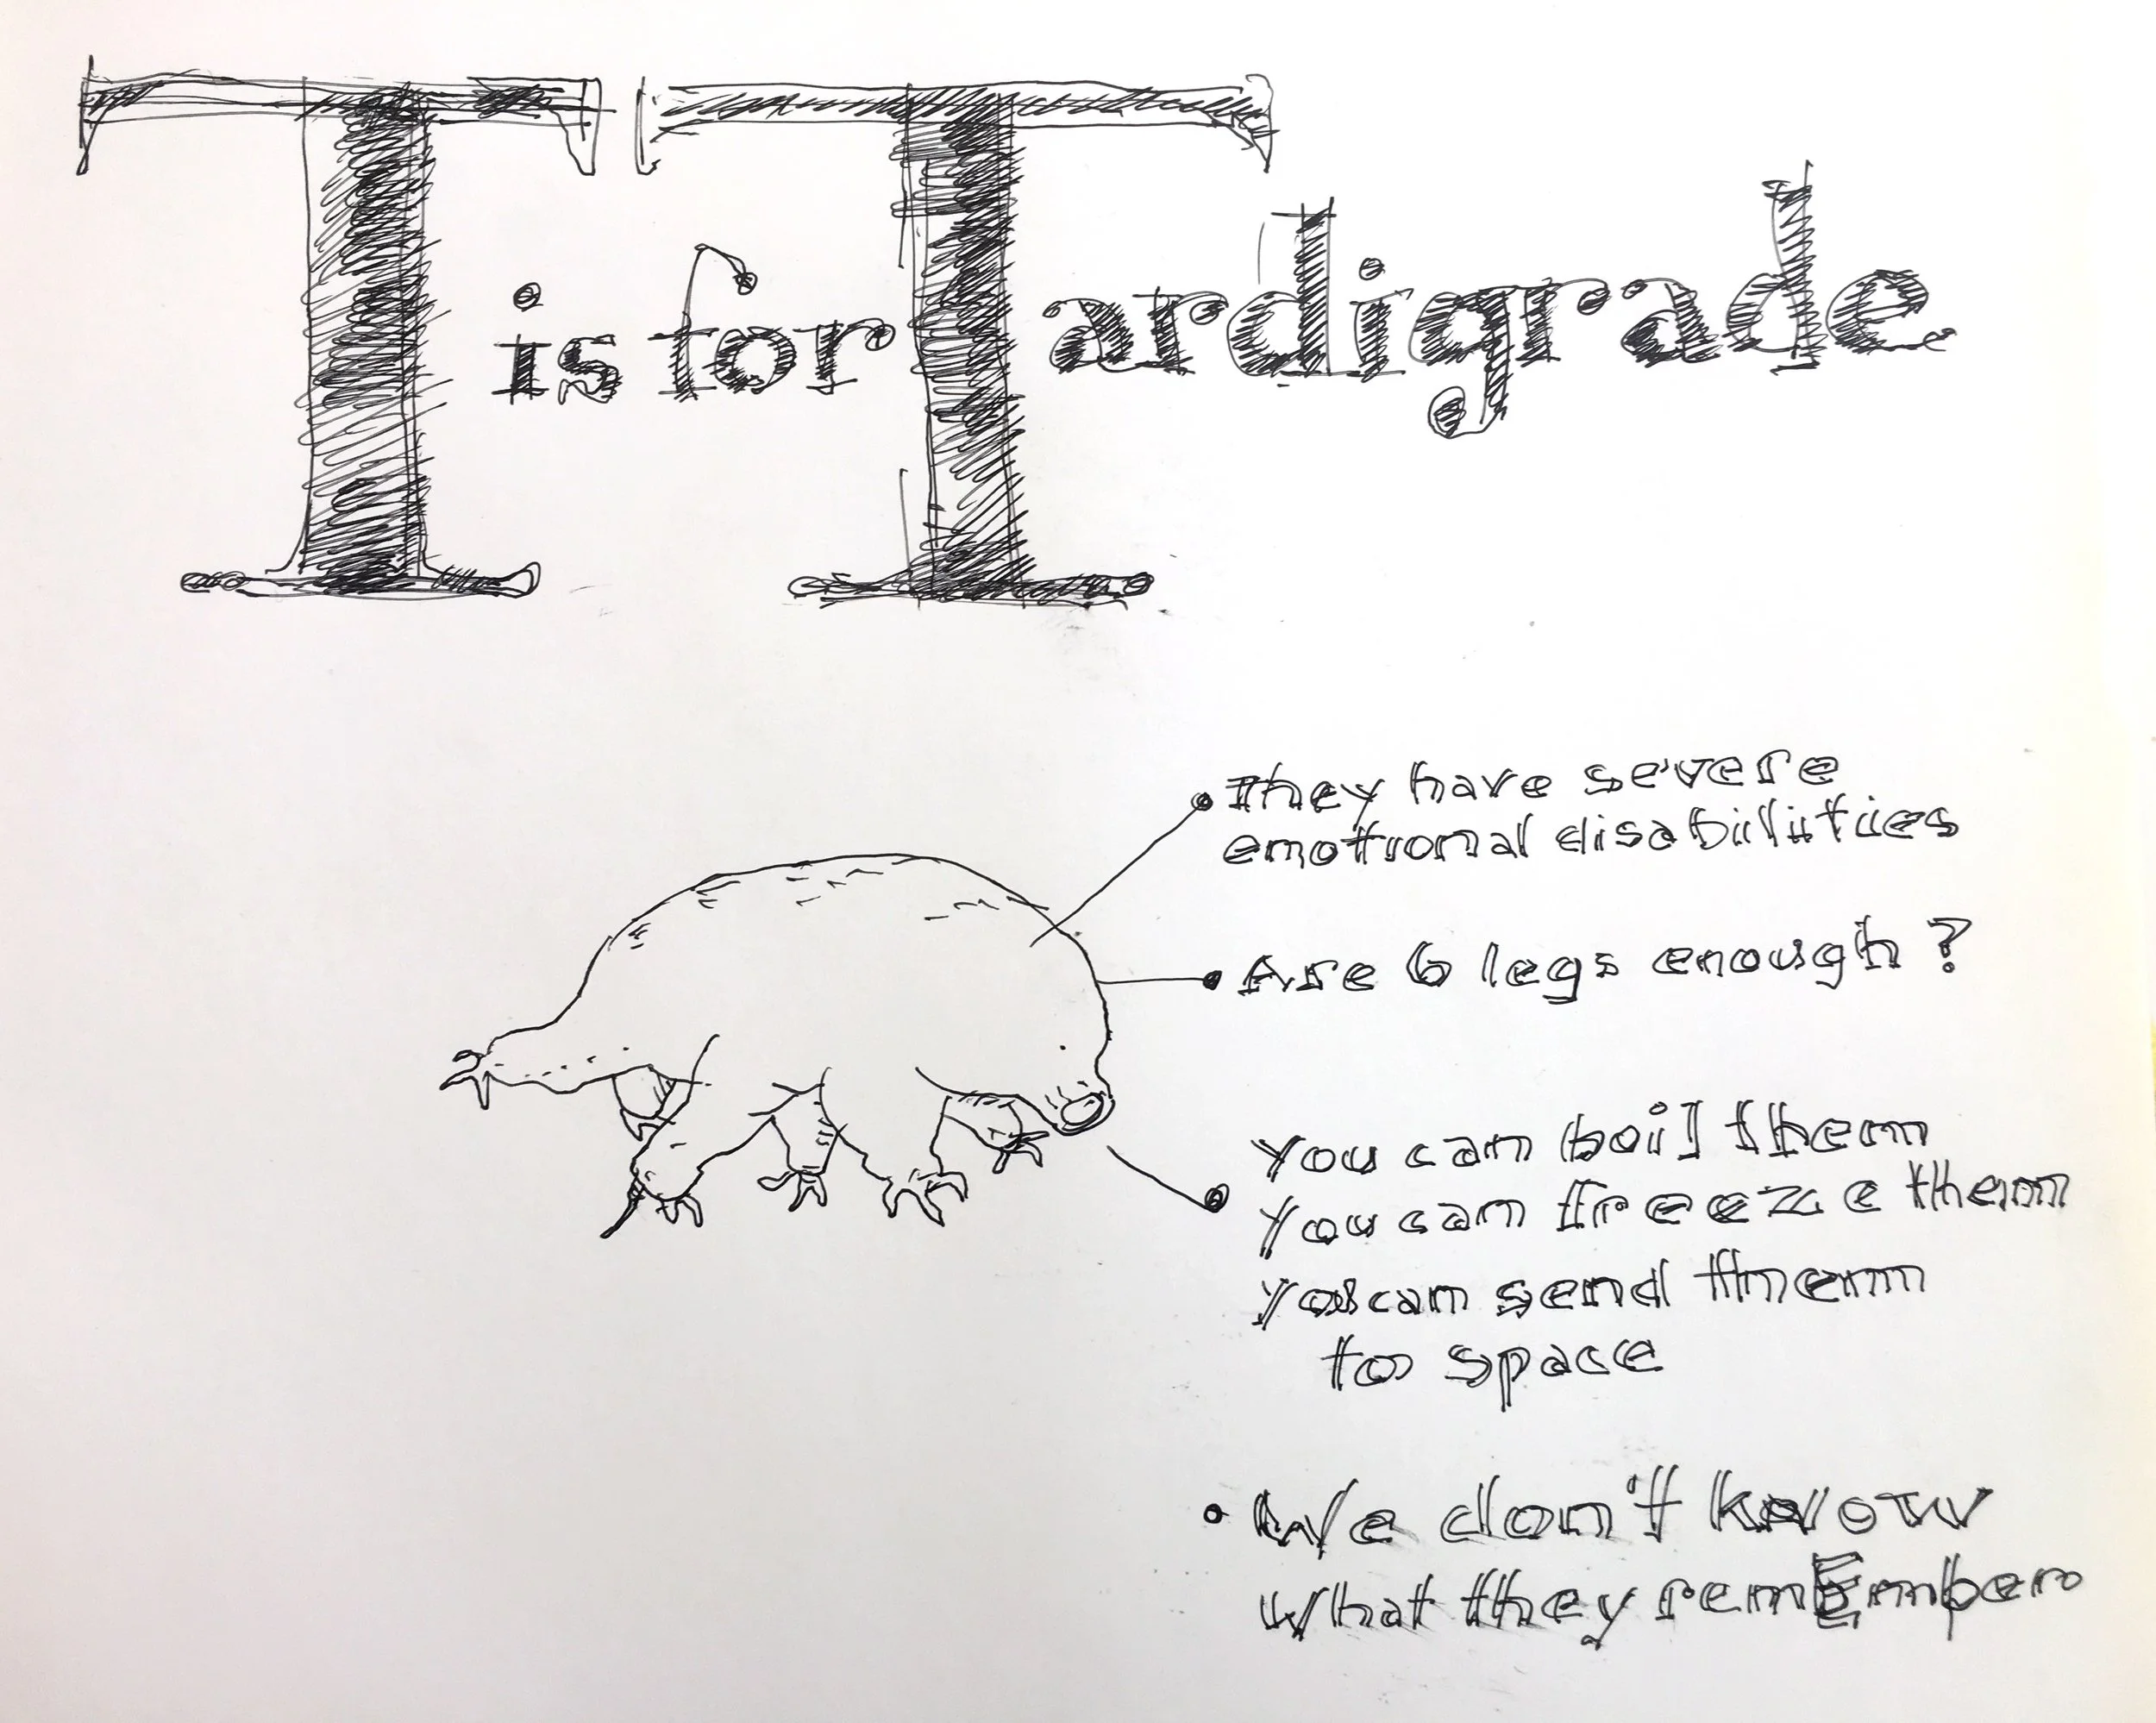 T is for Tardigrade
They have severe
emotional disabilities
Are 6 legs enough?
You can boil them
You can freeze them
you can send them
to space
We don't know
what they remEmber